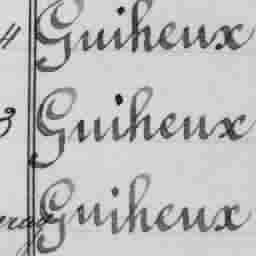 4 Guiheux
3 Guiheux
Guiheux